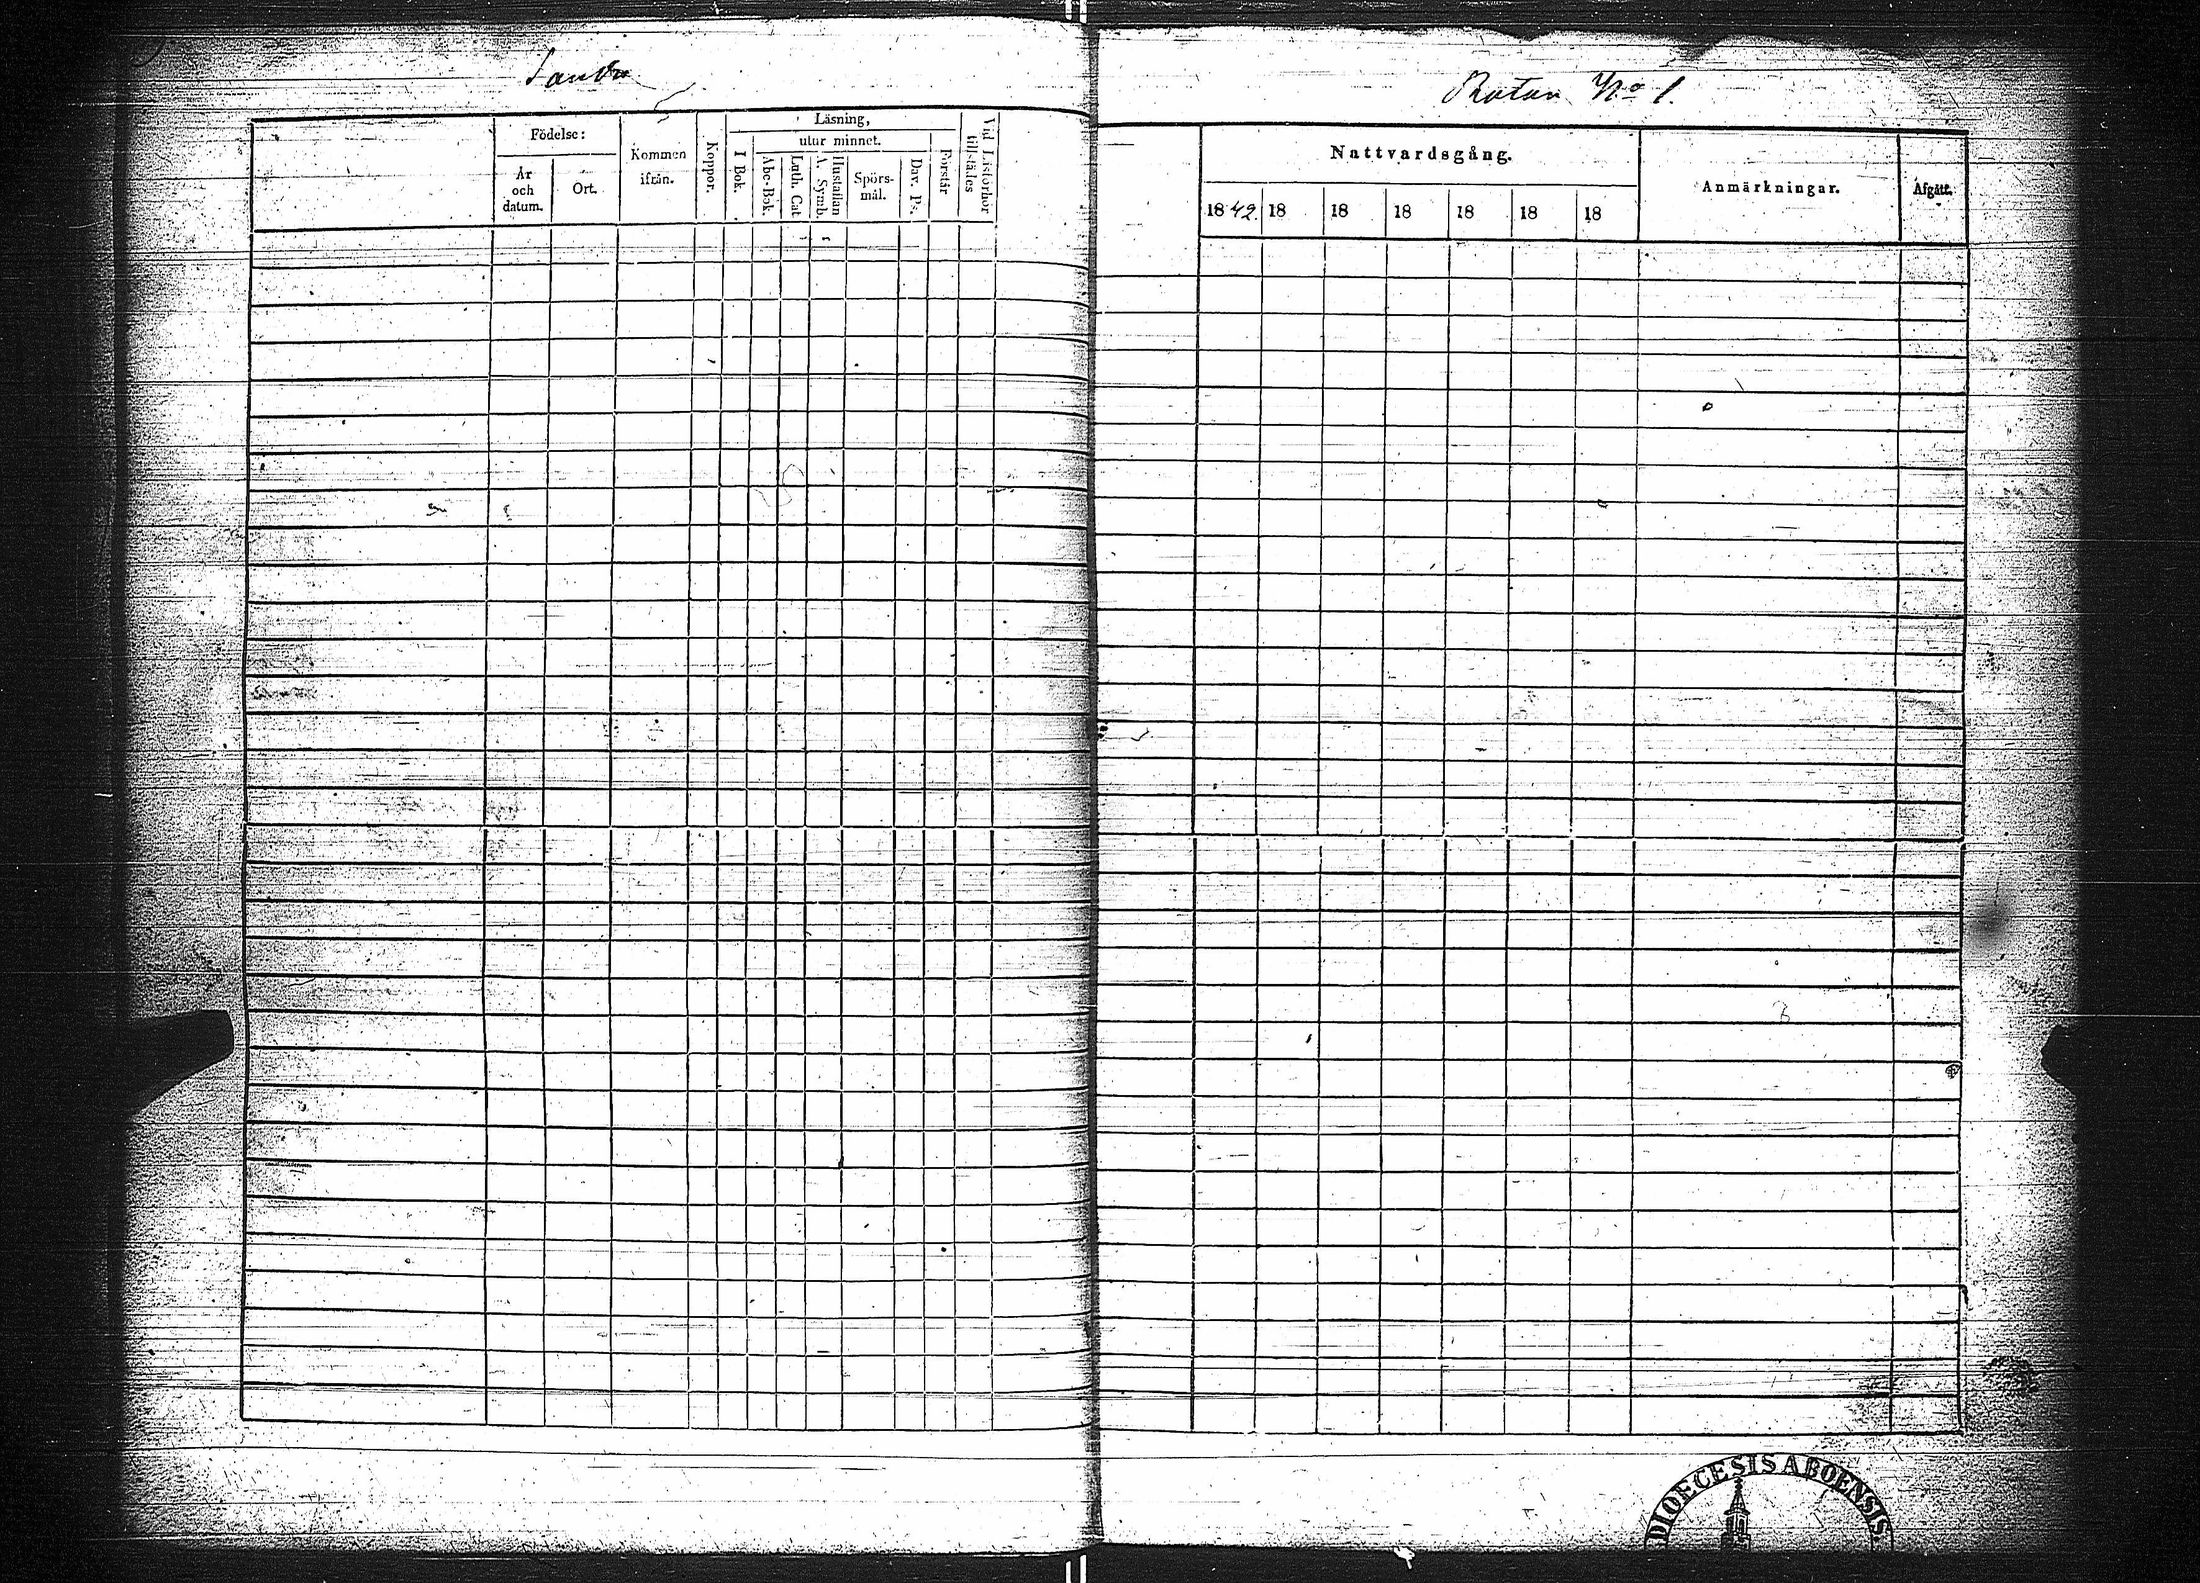 Sandra
Ratan No 1.
Födelse:
År och datum.
Ort.
Kommen ifrån.
Koppor.
Läsning,
utur minnet.
I Bok.
Abc-Bok.
Luth. Cat
Hustaflan A. Symb.
Spörs-mål.
Dav. Ps.
Förstår
Vid Läsförhör tillstädes
Nattvardsgång.
1842 18 18 18 18 18 18
Anmärkningar.
Afgått.
DIOECESIS ABOENSIS